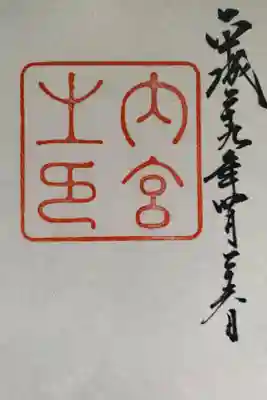 平成二十九年四月二十六日
内宮
之印